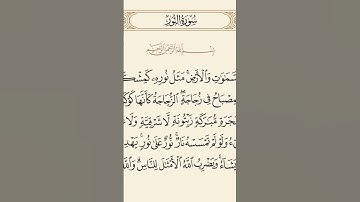 سُورَةُ النُّور
بِسْمِ اللَّهِ الرَّحْمَٰنِ الرَّحِيمِ
سَّمَٰوَٰتِ وَٱلْأَرْضِ مَثَلُ نُورِهِۦ كَمِشْكَ
مِصْبَاحُ فِى زُجَاجَةٍ ٱلزُّجَاجَةُ كَأَنَّهَا كَوْكَ
شَجَرَةٍ مُّبَٰرَكَةٍ زَيْتُونَةٍ لَّا شَرْقِيَّةٍ وَلَا
ىٓءُ وَلَوْ لَمْ تَمْسَسْهُ نَارٌ نُّورٌ عَلَىٰ نُورٍ يَهْدِ
يَشَآءُ وَيَضْرِبُ ٱللَّهُ ٱلْأَمْثَٰلَ لِلنَّاسِ وَٱللَّ